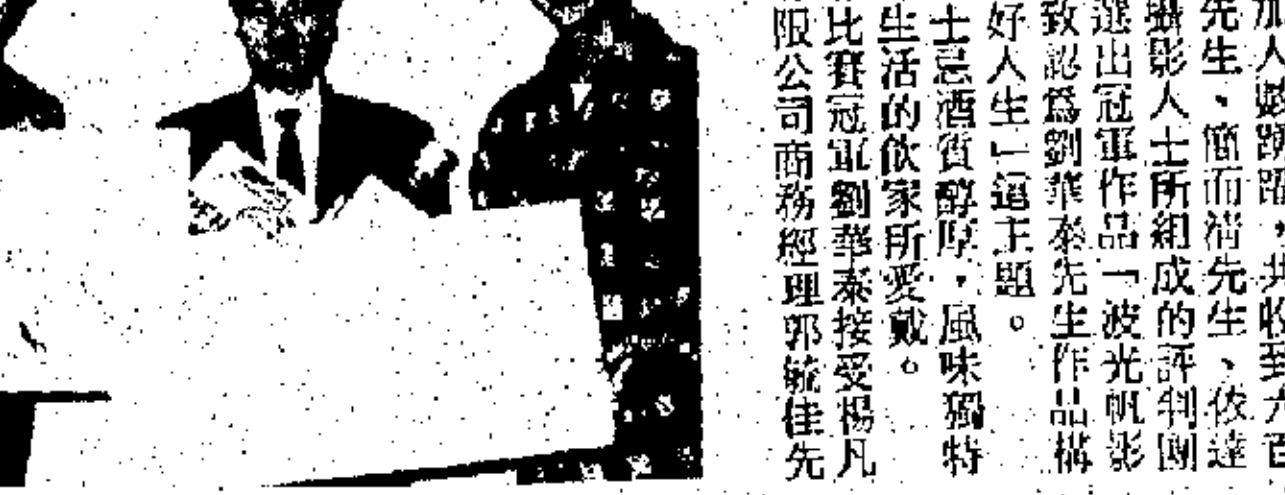 加人數踴躍，共收到六百
先生、簡而清先生、依達
攝影人士所組成的評判團
選出冠軍作品「波光帆影
致認爲劉華泰先生作品構
好人生」這主題。
士忌酒質醇厚，風味獨特
生活的飲家所愛戴。
比賽冠軍劉華泰接受楊凡
限公司商務經理郭毓佳先